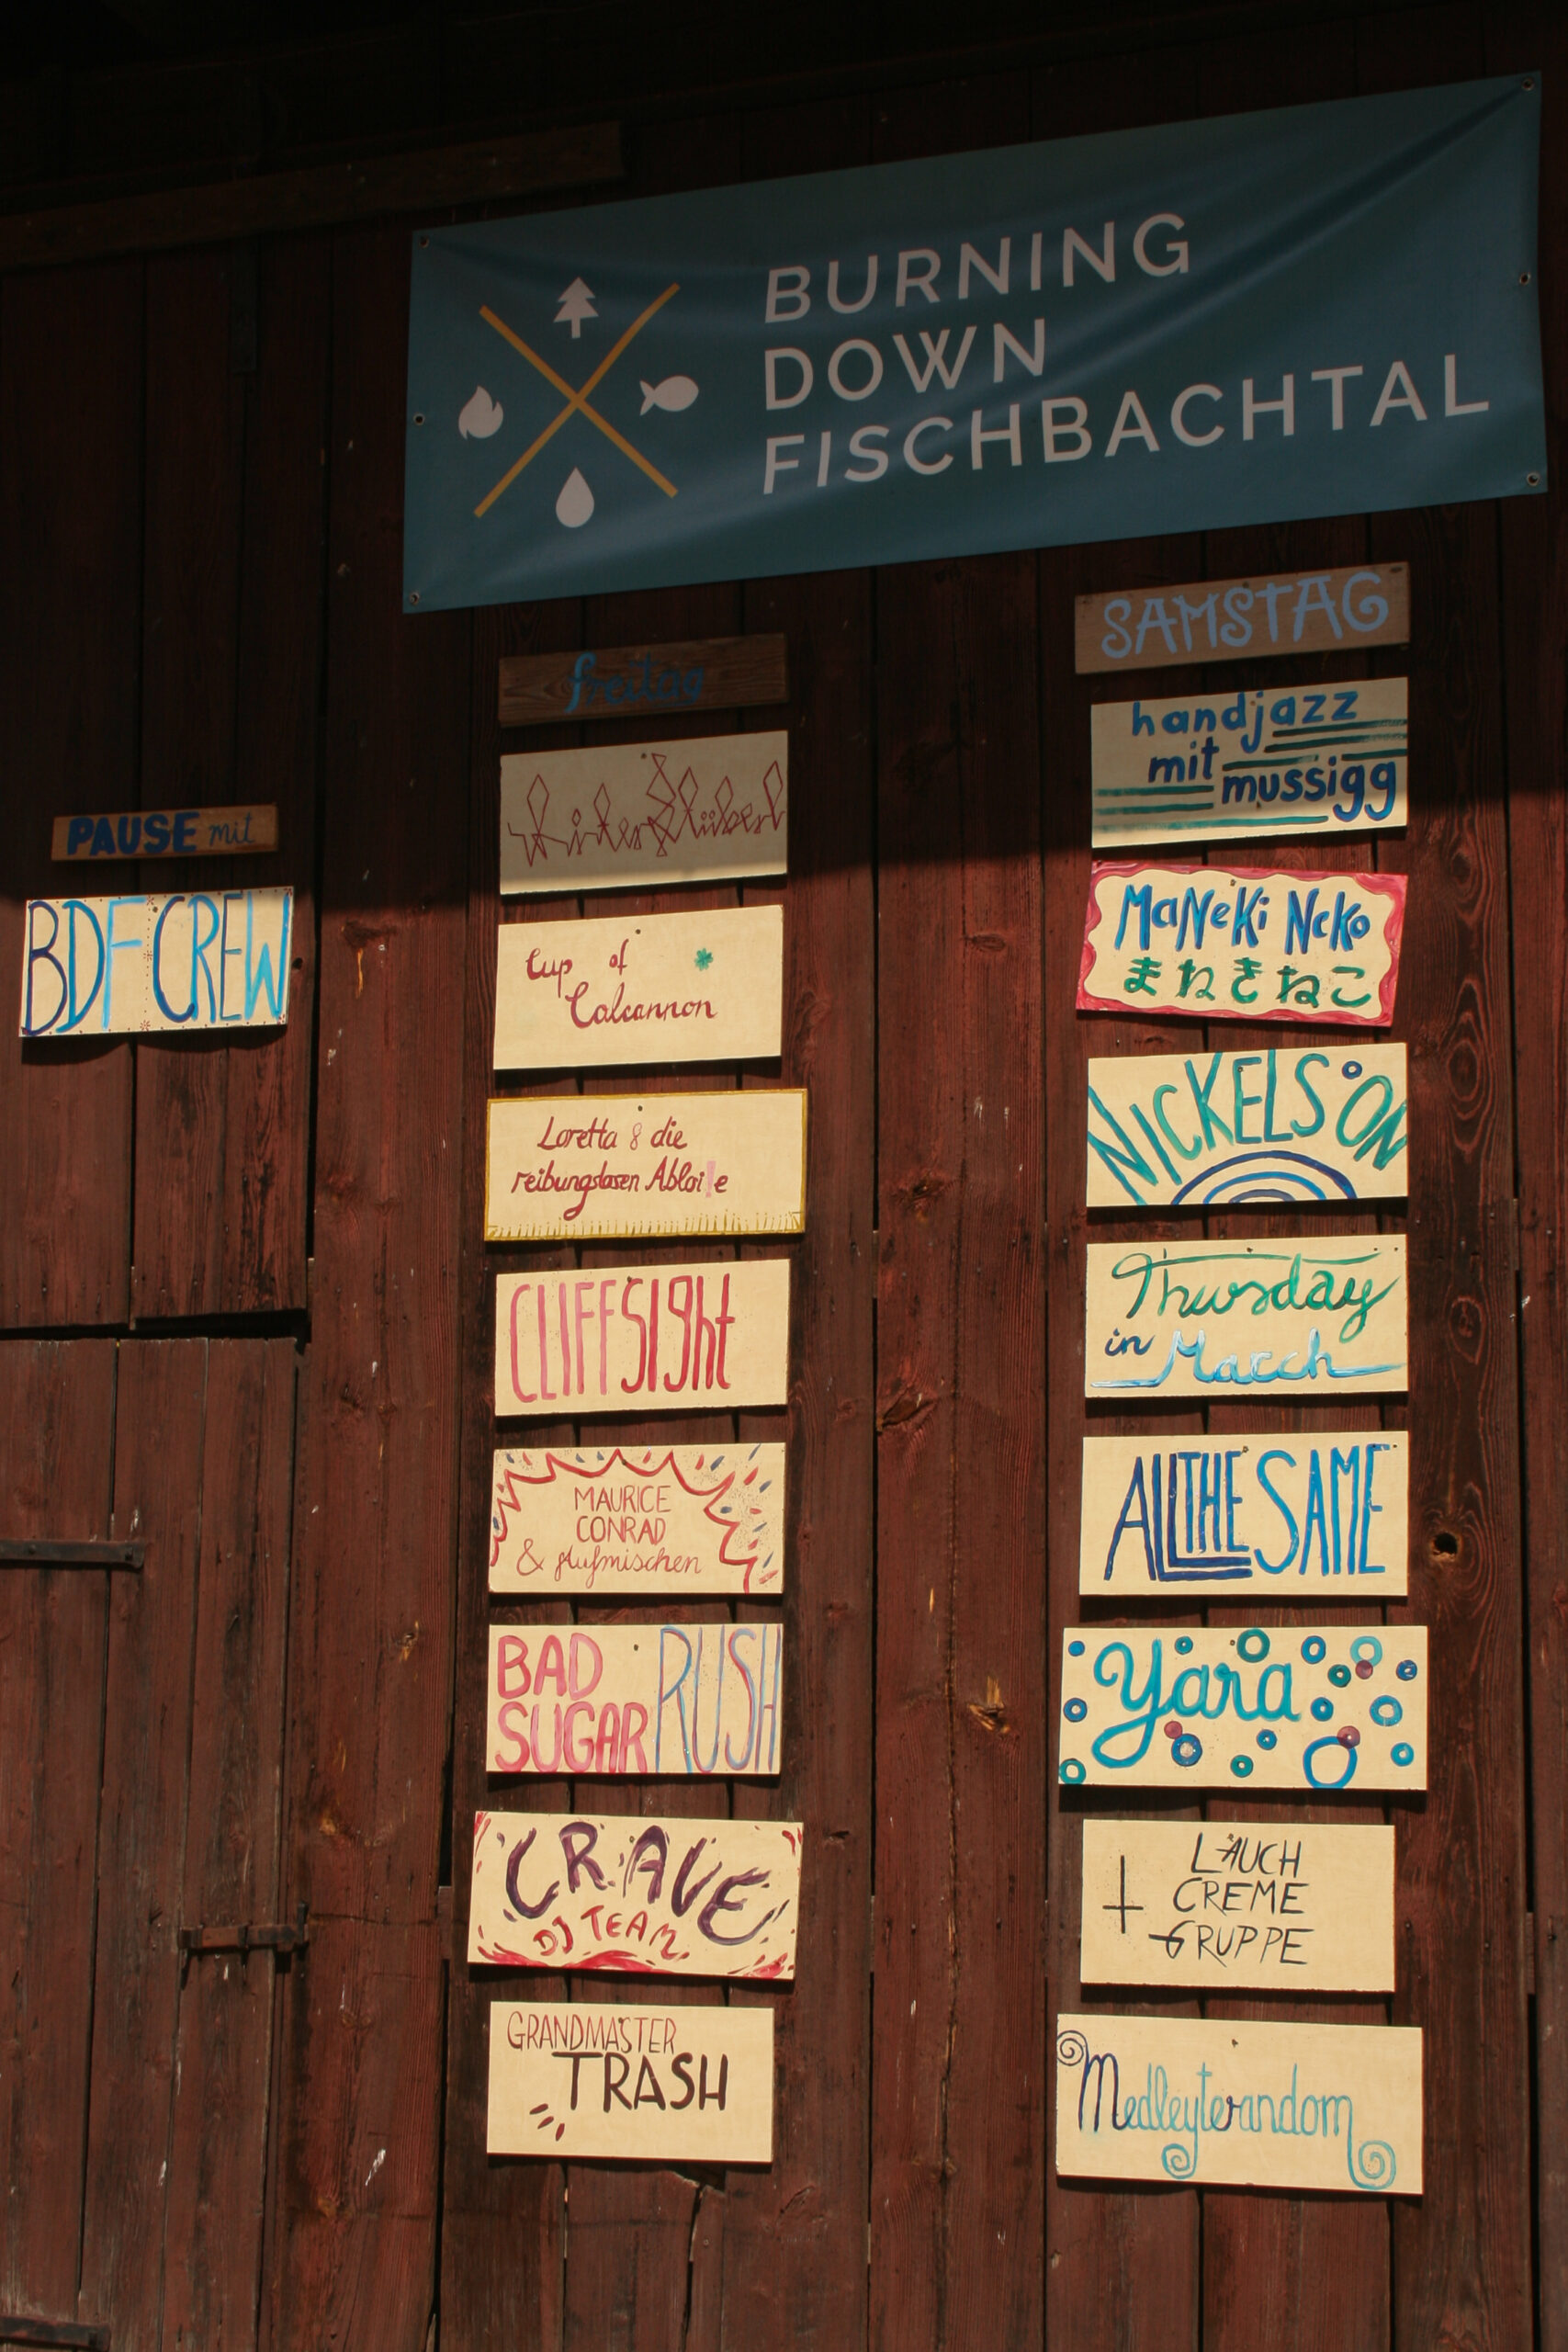 BURNING
DOWN
FISCHBACHTAL
PAUSE mit
BDF CREW
freitag
Cup of
Colcannon
Loretta & die
reibungslosen Abläufe
CLIFFSIGht
MAURICE
CONRAD
& glufmischen
BAD
SUGAR RUSH
CRAVE
DJ TEAM
GRANDMASTER
TRASH
SAMSTAG
handjazz
mit
mussigg
MaNeKi NeKo
まねきねこ
NICKELS'ON
Thursday
in March
ALL THE SAME
Yara
LAUCH
CREME
GRUPPE
Medleyterandom